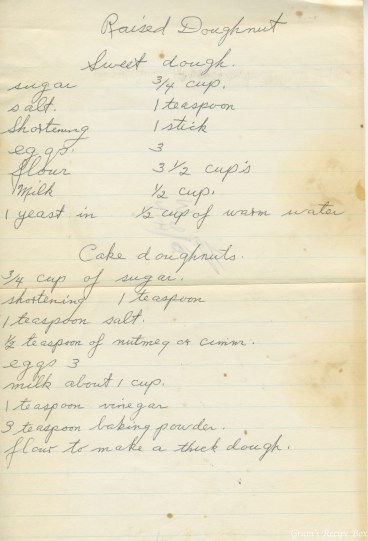 Raised Doughnut
Sweet dough.
sugar 3/4 cup.
salt. 1 teaspoon
Shortening 1 stick
eggs. 3
flour 3 1/2 cup's
Milk 1/2 cup.
1 yeast in 1/2 cup of warm water
Cake doughnuts.
3/4 cup of sugar.
shortening 1 teaspoon
1 teaspoon salt.
1/2 teaspoon of nutmeg or cinnm.
eggs 3
milk about 1 cup.
1 teaspoon vinegar
3 teaspoon baking powder.
flour to make a thick dough.